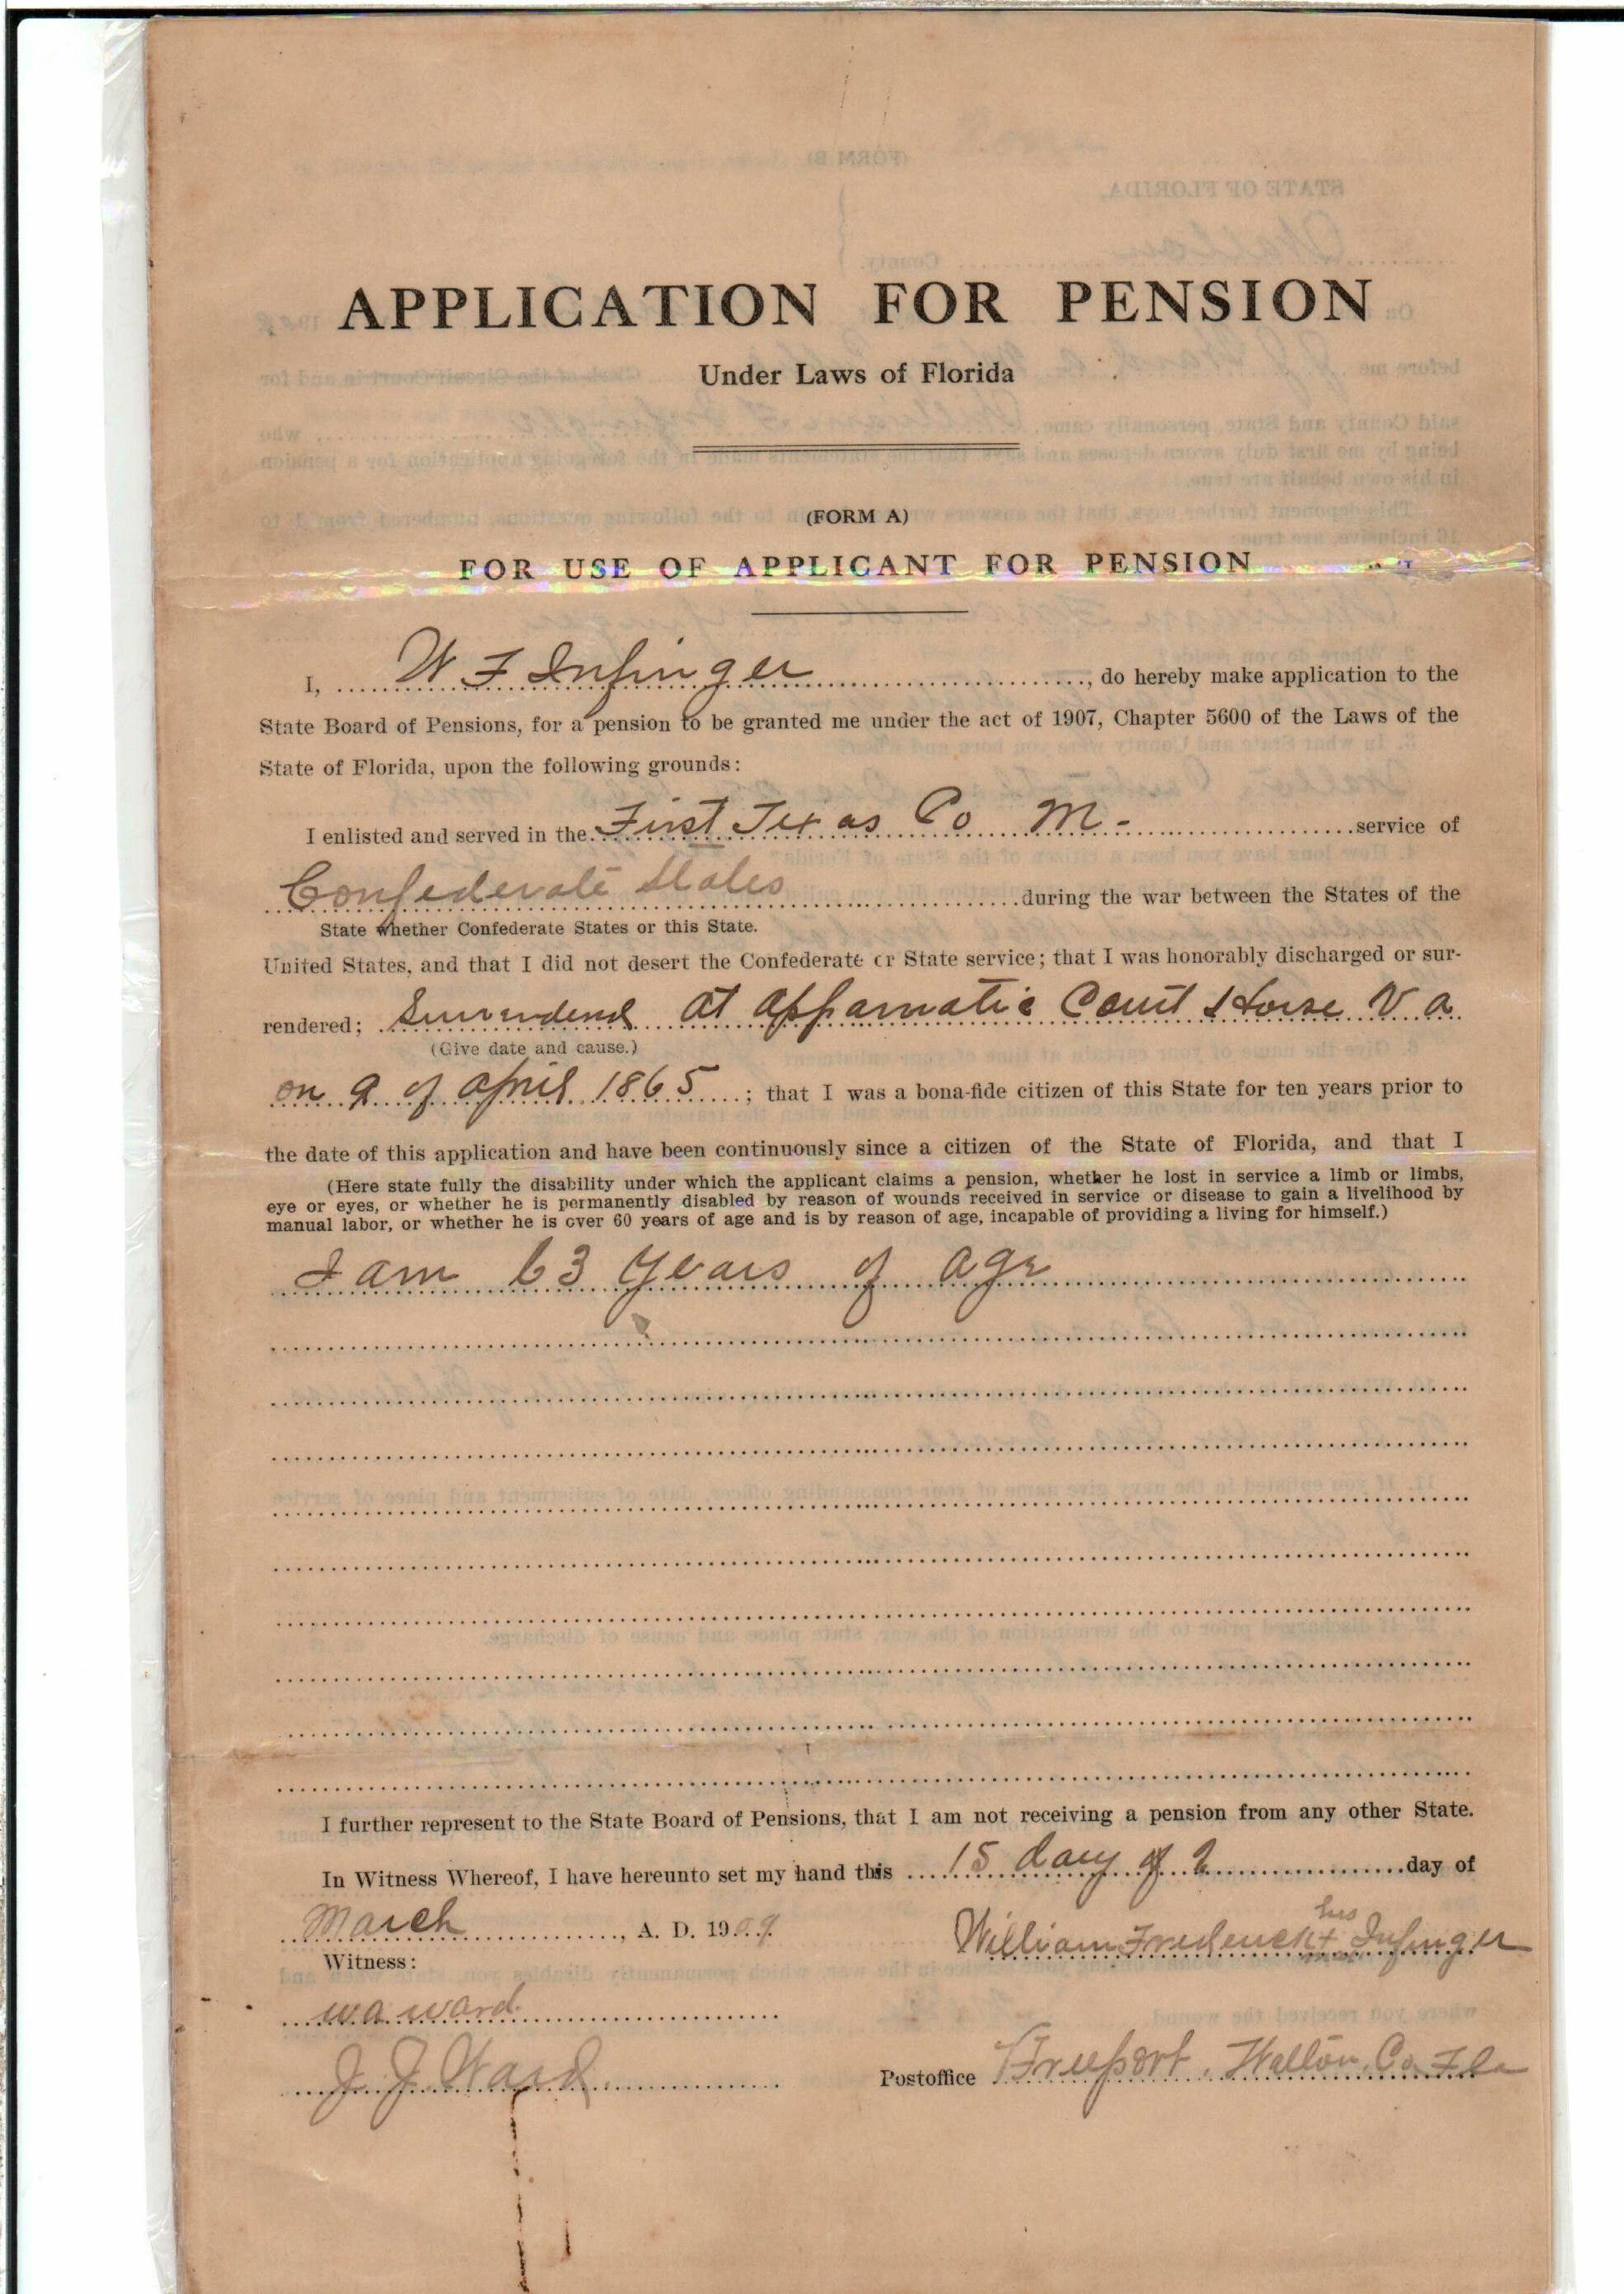 APPLICATION FOR PENSION
Under Laws of Florida
(FORM A)
FOR USE OF APPLICANT FOR PENSION
I, W F Infinger, do hereby make application to the
State Board of Pensions, for a pension to be granted me under the act of 1907, Chapter 5600 of the Laws of the
State of Florida, upon the following grounds:
I enlisted and served in the First Texas Co M - service of
Confederate States during the war between the States of the
State whether Confederate States or this State.
United States, and that I did not desert the Confederate or State service; that I was honorably discharged or sur-
rendered; at Court House Va
(Give date and cause.)
on 9 of april 1865; that I was a bona-fide citizen of this State for ten years prior to
the date of this application and have been continuously since a citizen of the State of Florida, and that I
(Here state fully the disability under which the applicant claims a pension, whether he lost in service a limb or limbs,
eye or eyes, or whether he is permanently disabled by reason of wounds received in service or disease to gain a livelihood by
manual labor, or whether he is over 60 years of age and is by reason of age, incapable of providing a living for himself.)
I am 63 years of age
I further represent to the State Board of Pensions, that I am not receiving a pension from any other State.
In Witness Whereof, I have hereunto set my hand this 15 day of day of
March, A. D. 1909.
his
William Frederick + Infinger
Witness:
w a ward
J. J. Ward
Postoffice Freeport, Walton Co Fla